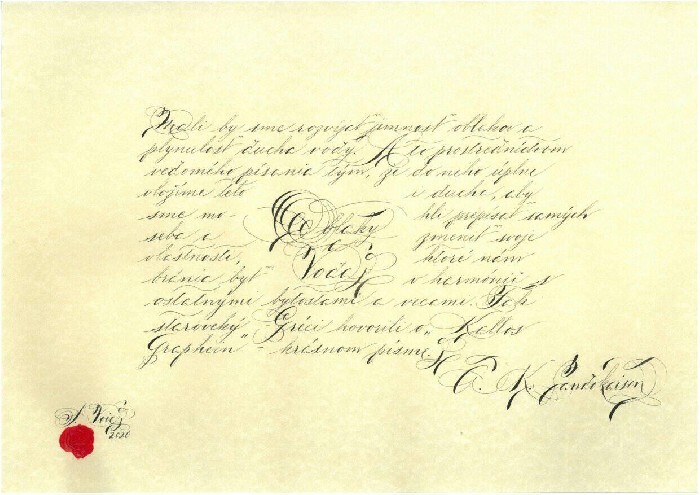 Mali by sme rozvíjať jemnosť oblakov a
plynulosť ducha vody. A to prostredníctvom
vedomého písania tým, že do neho úplne
vložíme telo i ducha, aby
sme mo- hli prepísať samých
seba a zmeniť svoje
vlastnosti, ktoré nám
bránia byť v harmónii s
ostatnými bytosťami a vecami. Tak
starovekí Gréci hovorili o „Kallos
Graphein" - krásnom písme.
Oblaky
a
Voda
E. K.
2020